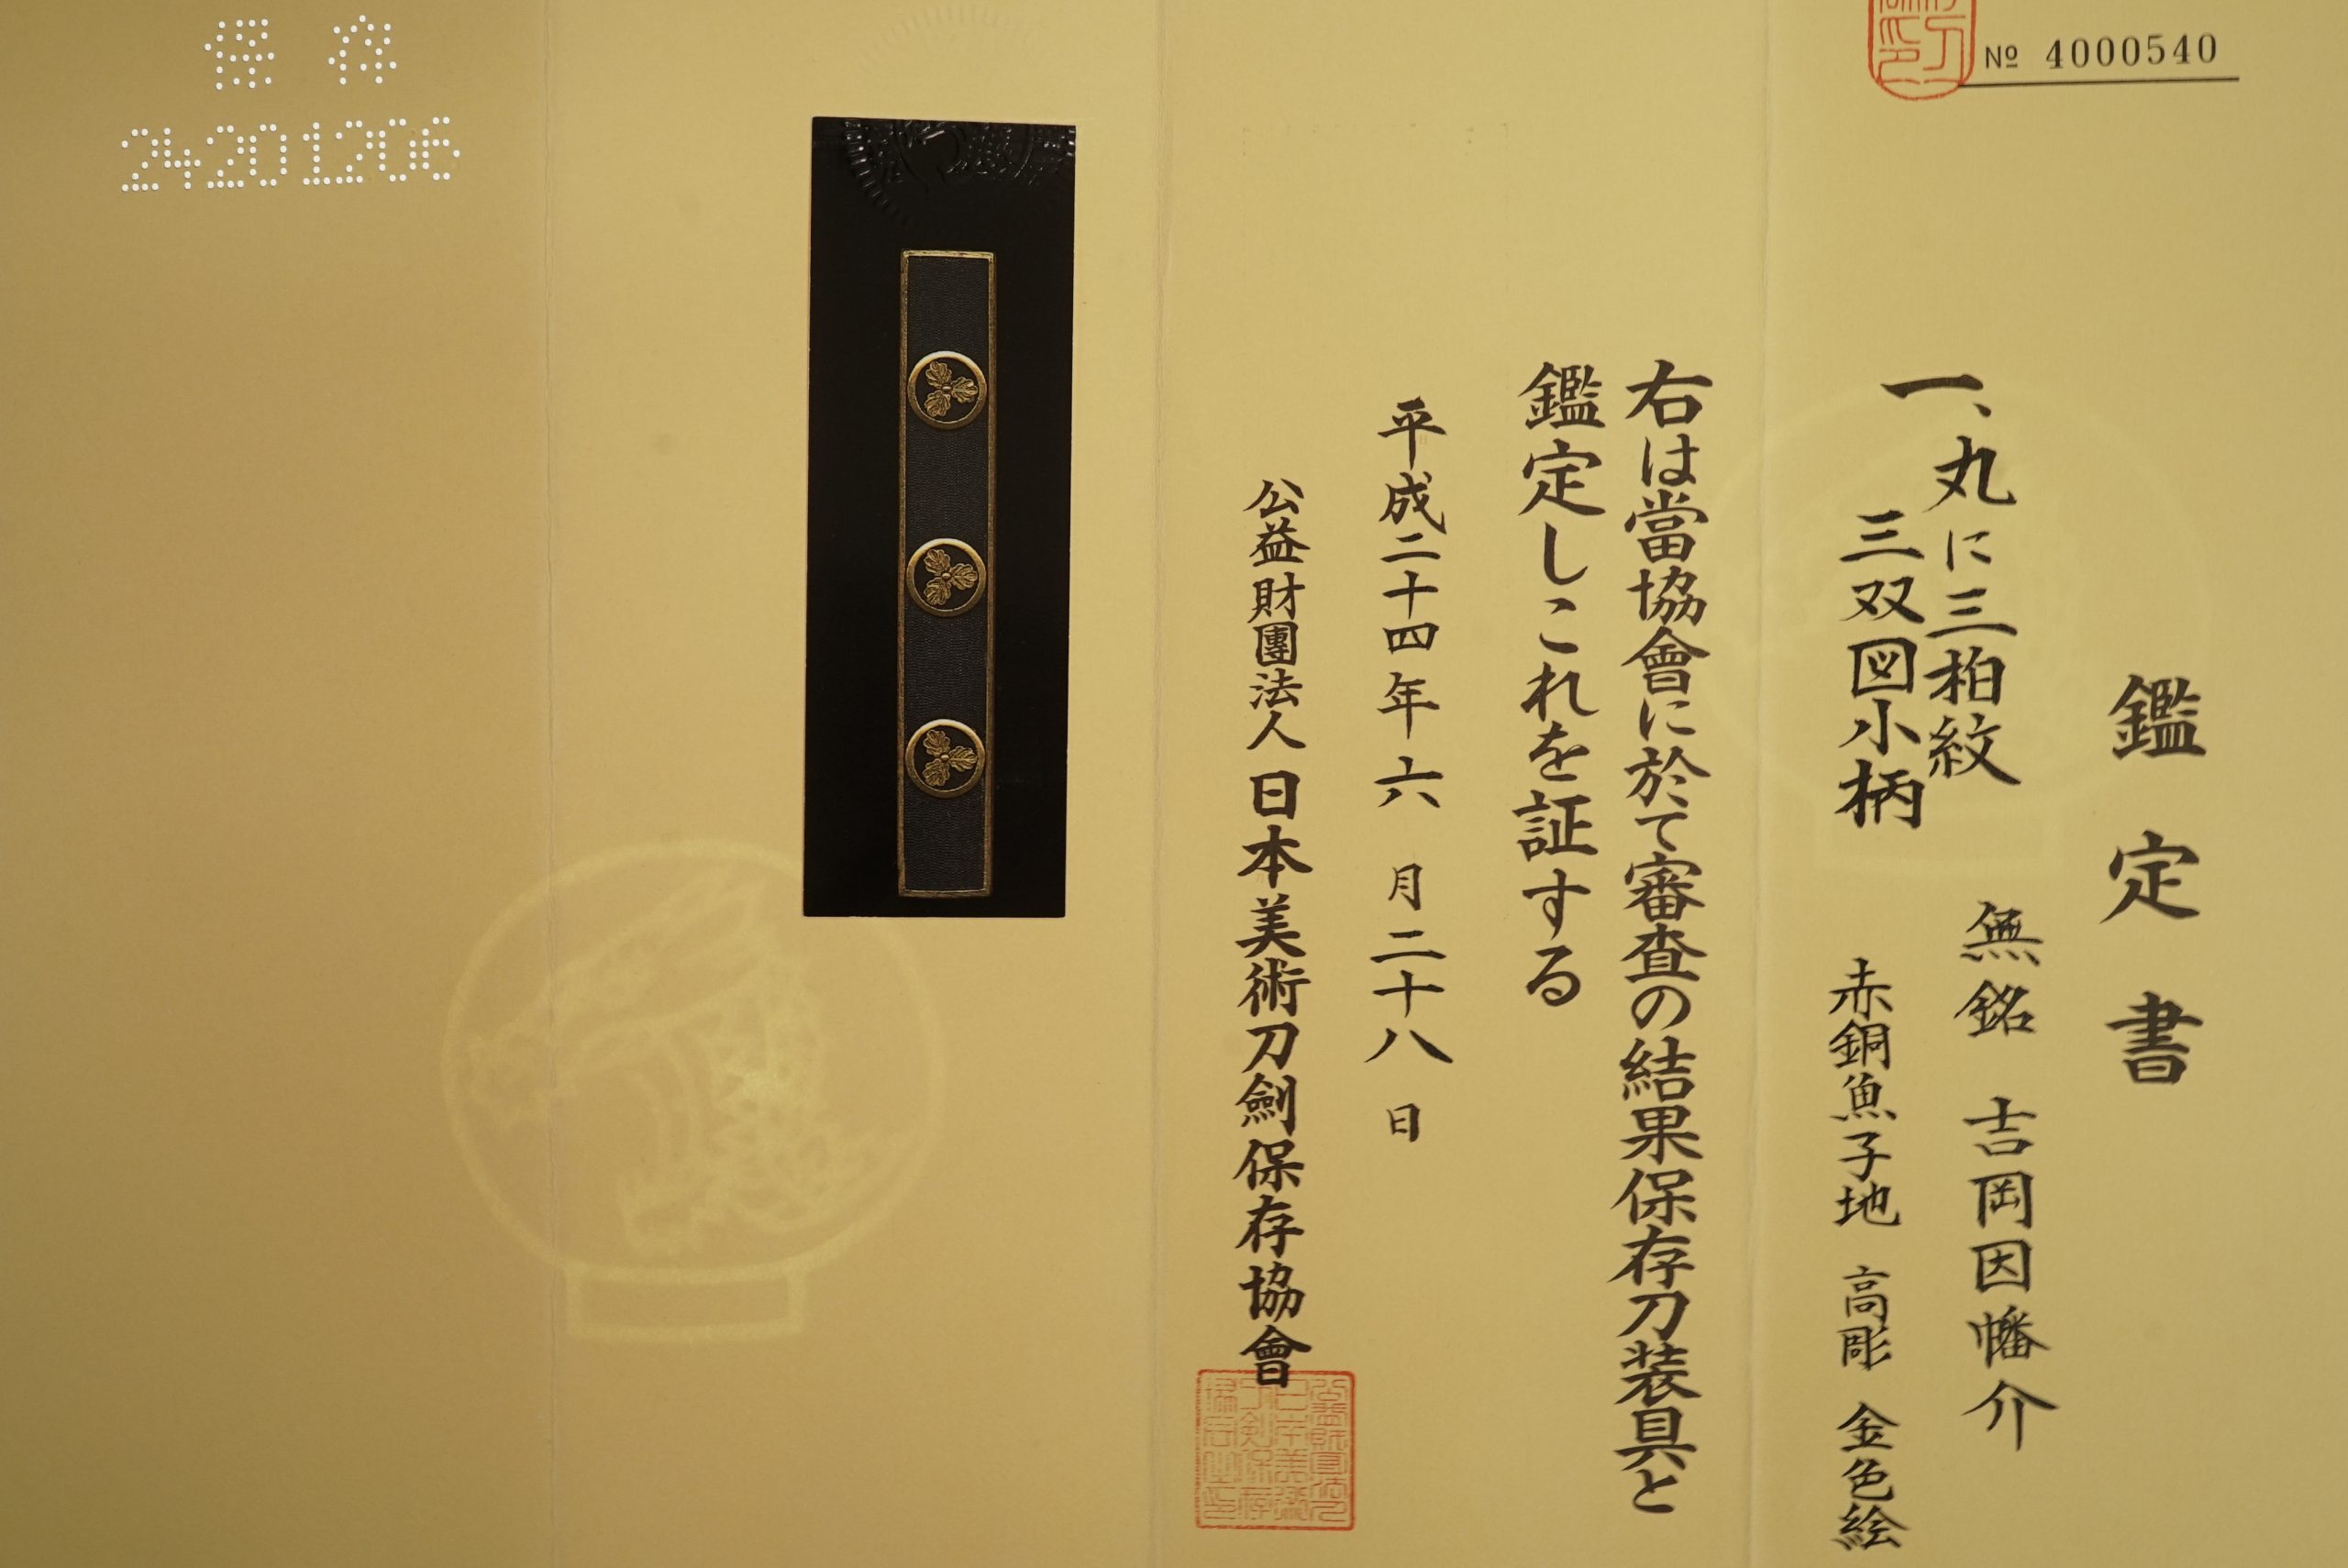 № 4000540
鑑定書
一、丸に三柏紋
三双図小柄
無銘 吉岡因幡介
赤銅魚子地 高彫 金色絵
右は當協會に於て審査の結果保存刀装具と
鑑定しこれを証する
平成二十四年六月二十八日
公益財團法人 日本美術刀劍保存協會
保存
24201206